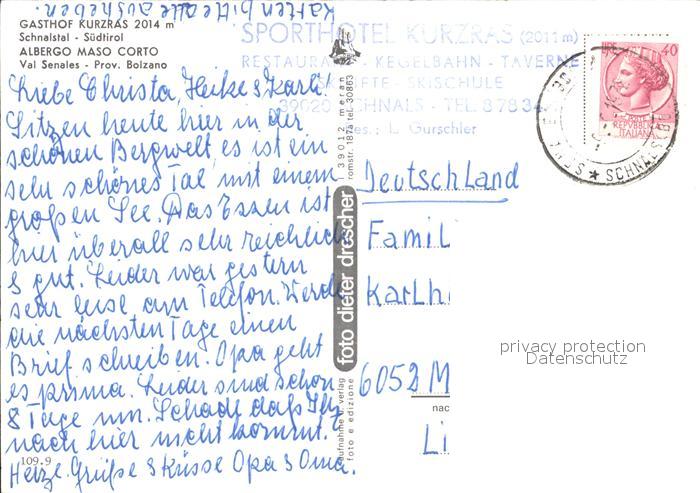 Karten bitte alle aufheben.
GASTHOF KURZRAS 2014 m
Schnalstal - Südtirol
ALBERGO MASO CORTO
Val Senales - Prov. Bolzano
Liebe Christa, Heike & Karli!
Sitzen heute hier in der
schönen Bergwelt, es ist ein
sehr schönes Tal mit einem
großen See. Das Essen ist
hier überall sehr reichlich
& gut. Leider war gestern
sehr leise am Telefon. Werde
die nächsten Tage einen
Brief schreiben. Opa geht
es prima. Leider sind schon
8 Tage um. Schade daß Ihr
nach hier nicht kommt.
109.9
Herzl. Grüße & Küsse Opa & Oma.
foto dieter drescher
39012 meran
romstr. 187a tel. 30863
aufnahme u. verlag
foto e edizione
SPORTHOTEL KURZRAS (2011m)
RESTAURANT - KEGELBAHN - TAVERNE
SKISCHULE
39020 SCHNALS - TEL. 8 78 34
Bes.: L. Gurschler
LIRE 40
POSTE
REPUBBLICA
ITALIANA
SCHNALS
Deutschland
Famil
Karlh
6052 M
nac
Li
privacy protection
Datenschutz